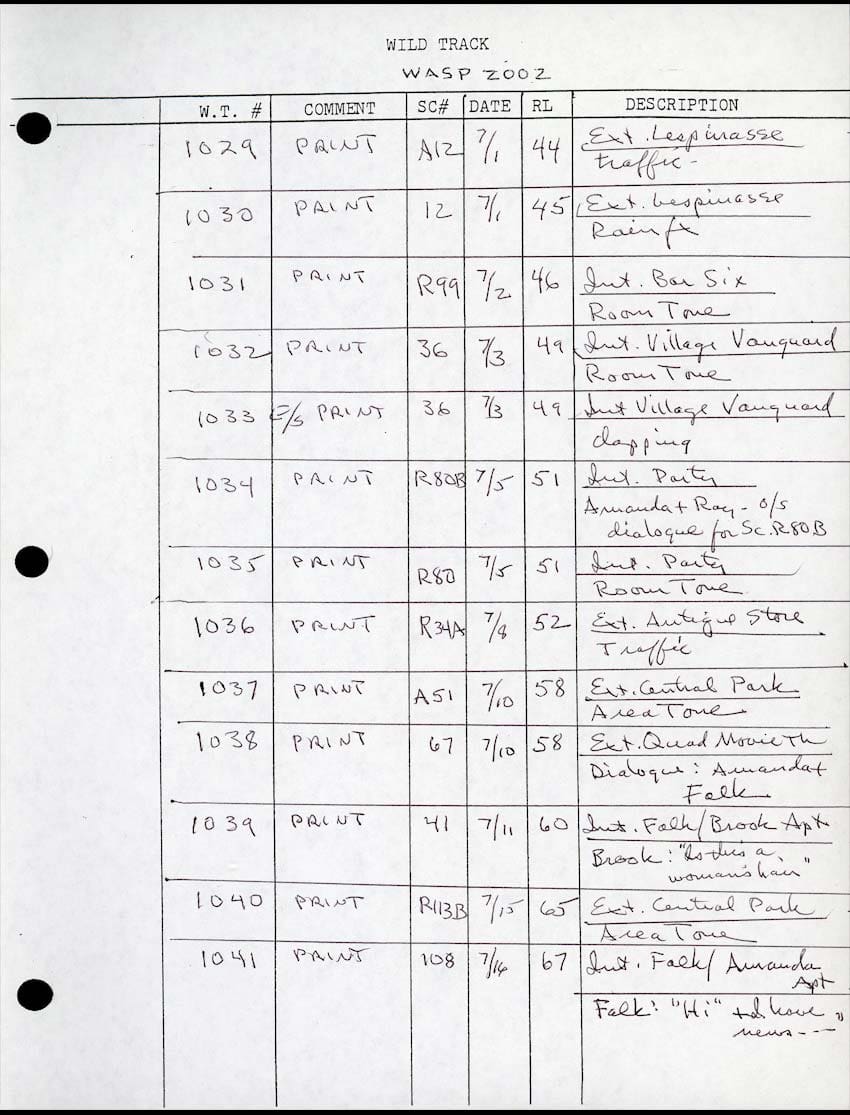 WILD TRACK
WASP 2002
W.T. # COMMENT SC# DATE RL DESCRIPTION
1029 PRINT A12 7/1 44 Ext. Lespinasse
traffic -
1030 PRINT 12 7/1 45 Ext. Lespinasse
Rain fx
1031 PRINT R99 7/2 46 Int. Bar Six
Room Tone
1032 PRINT 36 7/3 49 Int. Village Vanguard
Room Tone
1033 E/S PRINT 36 7/3 49 Int Village Vanguard
clapping
1034 PRINT R80B 7/5 51 Int. Party
Amanda + Ray - o/s
dialogue for Sc. R80B
1035 PRINT R80 7/5 51 Int. Party
Room Tone
1036 PRINT R34A 7/8 52 Ext. Antique Store
Traffic
1037 PRINT A51 7/10 58 Ext. Central Park
Area Tone
1038 PRINT 67 7/10 58 Ext. Quad Movie Th
Dialogue: Amanda +
Falk
1039 PRINT 41 7/11 60 Int. Falk/Brook Apt
Brook: "Is this a
woman's hair"
1040 PRINT R113B 7/15 65 Ext. Central Park
Area Tone
1041 PRINT 108 7/16 67 Int. Falk/Amanda
Apt
Falk: "Hi" + "I have
news---"